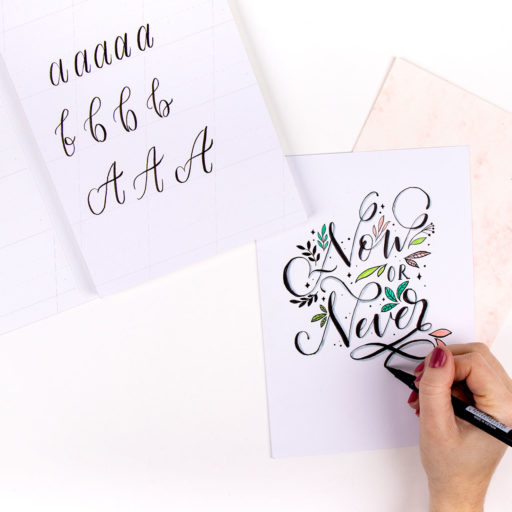 a a a a a
b b b b
A A A
Now
OR
Never